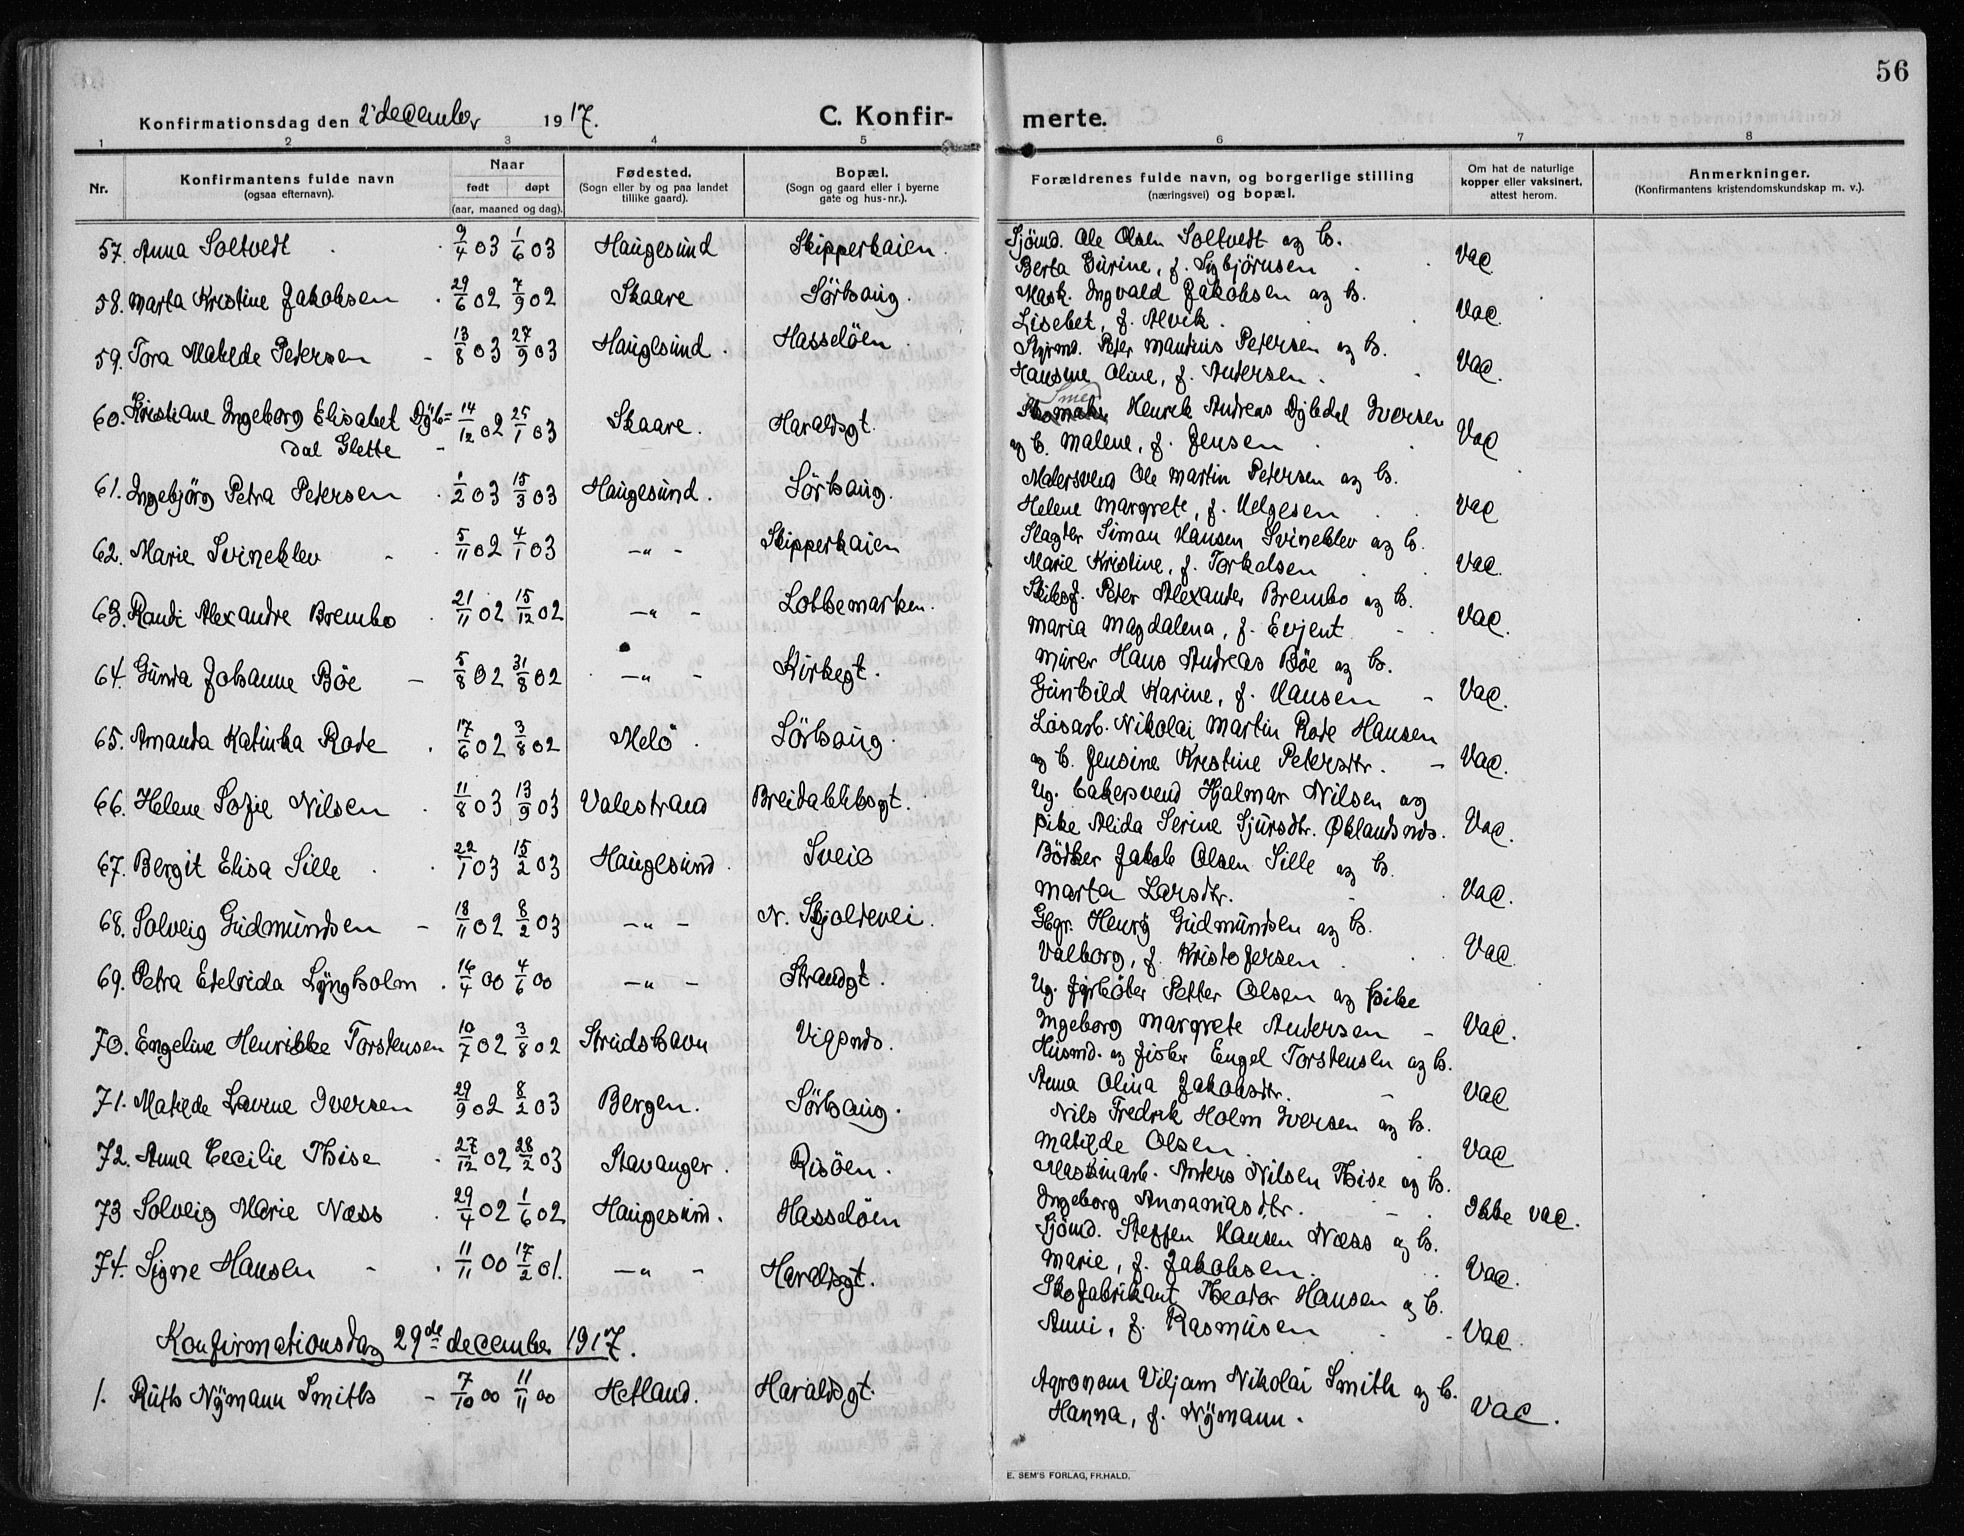 56
Konfirmationsdag den 2 december 1917.
C. Konfirmerte.
1 2 3 4 5 6 7 8
Nr.
Konfirmantens fulde navn
(ogsaa efternavn).
Naar
født døpt
(aar, maaned og dag).
Fødested.
(Sogn eller by og paa landet
tillike gaard).
Bopæl.
(Sogn og gaard eller i byerne
gate og hus-nr.).
Forældrenes fulde navn, og borgerlige stilling
(næringsvei) og bopæl.
Om hat de naturlige
kopper eller vaksinert,
attest herom.
Anmerkninger.
(Konfirmantens kristendomskundskap m. v.).
57. Anna Soltvedt 9/4 03 1/6 03 Haugesund Skipperkaien. Sjømd. Ole Olsen Soltvedt og h. Vac
Berta Gurine, f. Sigbjørnsen
58. Marta Kristine Jakobsen 29/6 02 7/9 02 Skaare Sørhaug. Mask. Ingvald Jakobsen og h. Vac.
Lisebet, f. Alvik.
59. Tora Matilde Petersen 13/8 03 27/9 03 Haugesund. Hasseløen. Styrmd. Peter Mauritius Petersen og h. Vac.
Hansine Oline, f. Andersen.
60. Kristiane Ingeborg Elisabet Dyb= 14/12 02 25/1 03 Skaare. Haraldsgt. Smed Henrik Andreas Dybdal Iversen Vac
dal Glette og h. Malene, f. Jensen
61. Ingebjørg Petra Petersen 1/2 03 15/3 03 Haugesund. Sørhaug. Malersvend Ole Martin Petersen og h. Vac
Helene Margrete, f. Helgesen
62. Marie Svineklev 5/11 02 4/1 03 -"- Skipperkaien Slagter Simon Hansen Svineklev og h. Vac.
Marie Kristine, f. Torkelsen
63. Randi Alexandre Brembo 21/11 02 15/12 02 -"- Lothemarken. Skibsf. Peter Alexander Brembo og h. Vac.
Maria Magdalena, f. Evjent
64. Gunda Johanne Bøe 5/8 02 31/8 02 -"- Kirkegt. Murer Hans Andreas Bøe og h. Vac.
Gunhild Karine, f. Hansen
65. Amanda Katinka Rode 17/6 02 3/8 02 Melø Sørhaug. Løsarb. Nikolai Martin Rode Hansen Vac.
og h. Jensine Kristine Petersdtr.
66. Helene Sofie Nilsen 11/8 03 13/9 03 Valestrand Breidablikgt. Ug. bakersvend Hjalmar Nilsen og Vac.
pike Alida Serine Sjursdtr. Øklandsnds.
67. Bergit Elisa Sille 22/1 03 15/2 03 Haugesund. Sveio Bødker Jakob Olsen Sille og h. Vac.
Marta Larsdtr.
68. Solveig Gudmundsen 18/11 02 8/2 03 -"- N. Skjoldevei. Hgr. Henry Gudmundsen og h. Vac
Valborg, f. Kristofersen
69. Petra Edelrida Lyngholm 16/4 00 4/6 00 -"- Strandgt. Ug. fyrbøter Petter Olsen og pike Vac.
Ingeborg Margrete Andersen
70. Engeline Henrikke Torstensen 10/7 02 3/8 02 Strudshavn Vigsnds. Husmd. og fisker Engel Torstensen og h. Vac
Anna Olina Jakobsdtr.
71. Matilde Lavine Iversen 29/9 02 8/2 03 Bergen. Sørhaug. Nils Fredrik Holm Iversen og h. Vac
Matilde Olsen.
72. Anna Cecilie Thise 27/12 02 28/2 03 Stavanger. Risøen. Maskinarb. Anders Nilsen Thise og h. Ikke vac.
Ingeborg Annaniasdtr.
73 Solveig Marie Næss 29/4 02 1/6 02 Haugesund. Hasseløen Sjømd. Steffen Hansen Næss og h. Vac.
Marie, f. Jakobsen.
74. Signe Hansen 11/11 00 17/2 01. -"- Haraldsgt. Skofabrikant Theodor Hansen og h. Vac.
Anni, f. Rasmusen
Konfirmationsdag 29de december 1917.
1. Ruth Nymann Smith 7/10 00 11/11 00 Hetland. Haraldsgt. Agronom Viljam Nikolai Smith og h. Vac.
Hanna, f. Nymann.
E. SEM'S FORLAG, FR.HALD.